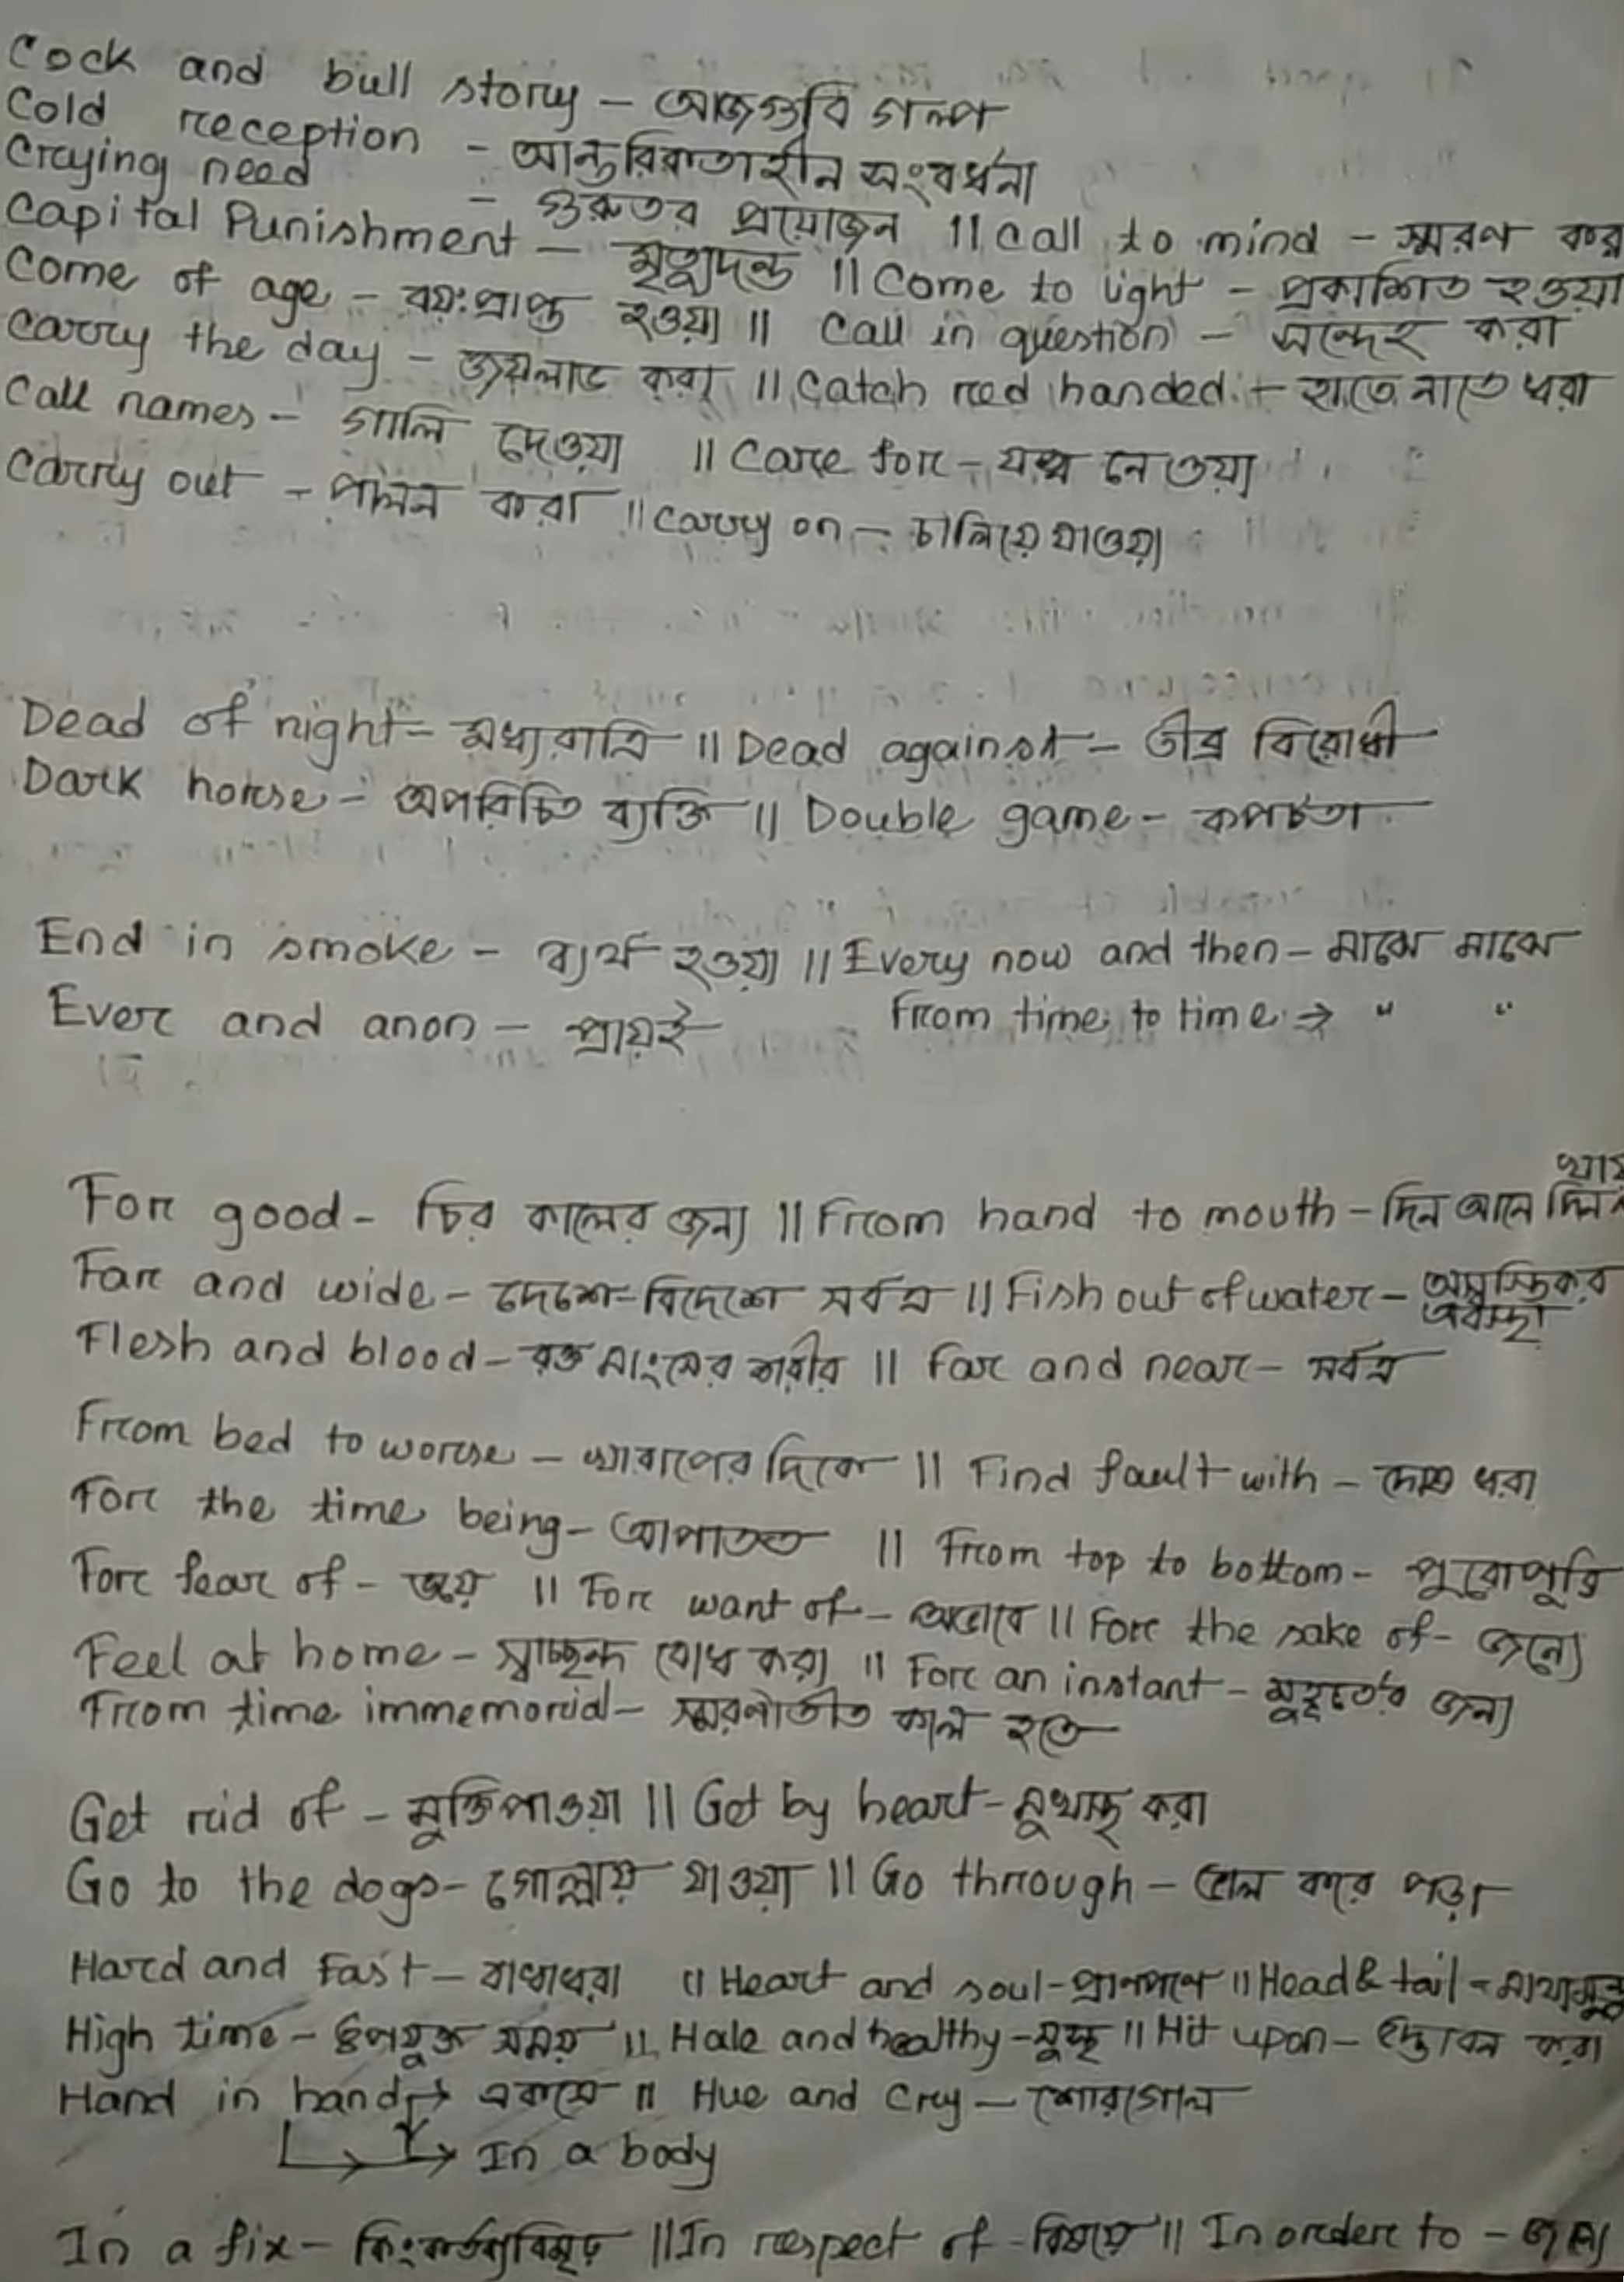 Cock and bull story – আজগুবি গল্প
Cold reception – আন্তরিকতাহীন সংবর্ধনা
Crying need – গুরুতর প্রয়োজন || Call to mind – স্মরণ করা
Capital Punishment – মৃত্যুদন্ড || Come to light – প্রকাশিত হওয়া
Come of age – বয়ঃপ্রাপ্ত হওয়া || Call in question – সন্দেহ করা
Carry the day – জয়লাভ করা || Catch red handed – হাতে নাতে ধরা
Call names – গালি দেওয়া || Care for – যত্ন নেওয়া
Carry out – পালন করা || Carry on – চালিয়ে যাওয়া
Dead of night – মধ্যরাত্রি || Dead against – তীব্র বিরোধী
Dark horse – অপরিচিত ব্যক্তি || Double game – কপটতা
End in smoke – ব্যর্থ হওয়া || Every now and then – মাঝে মাঝে
Ever and anon – প্রায়ই From time to time → " "
For good – চির কালের জন্য || From hand to mouth – দিন আনে দিন খায়
Far and wide – দেশে-বিদেশে সর্বত্র || Fish out of water – অস্বস্তিকর অবস্থা
Flesh and blood – রক্ত মাংসের শরীর || Far and near – সর্বত্র
From bed to worse – খারাপের দিকে || Find fault with – দোষ ধরা
For the time being – আপাতত || From top to bottom – পুরোপুরি
For fear of – ভয়ে || For want of – অভাবে || For the sake of – জন্যে
Feel at home – স্বাচ্ছন্দ বোধ করা || For an instant – মুহূর্তের জন্য
From time immemorial – স্মরণাতীত কাল হতে
Get rid of – মুক্তি পাওয়া || Get by heart – মুখস্থ করা
Go to the dogs – গোল্লায় যাওয়া || Go through – ভাল করে পড়া
Hard and fast – বাধাধরা || Heart and soul – প্রাণপণে || Head & tail – মাথামুন্ডু
High time – উপযুক্ত সময় || Hale and healthy – সুস্থ || Hit upon – উদ্ভাবন করা
Hand in hand → একত্রে || Hue and Cry – শোরগোল
→ In a body
In a fix – কিংকর্তব্যবিমূঢ় || In respect of – বিষয়ে || In order to – জন্য